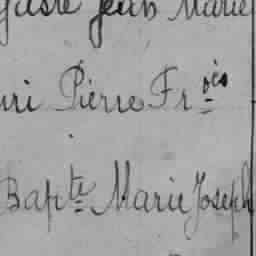 Jean Marie
Pierre Frçois
Bapte Marie Joseph